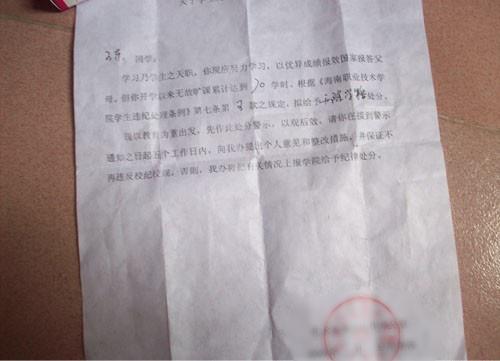 同学:
学习乃学生之天职，你现应努力学习，以优异成绩报效国家报答父
母。但你开学以来无故旷课累计达到 70 学时，根据《海南职业技术学
院学生违纪处理条例》第七条第 3 款之规定，拟给予 处分。
我以教育为重出发，先作此处分警示，以观后效。请你在接到警示
通知之日起五个工作日内，向我办提出个人意见和整改措施，并保证不
再违反校纪校规，否则，我办将把有关情况上报学院给予纪律处分。